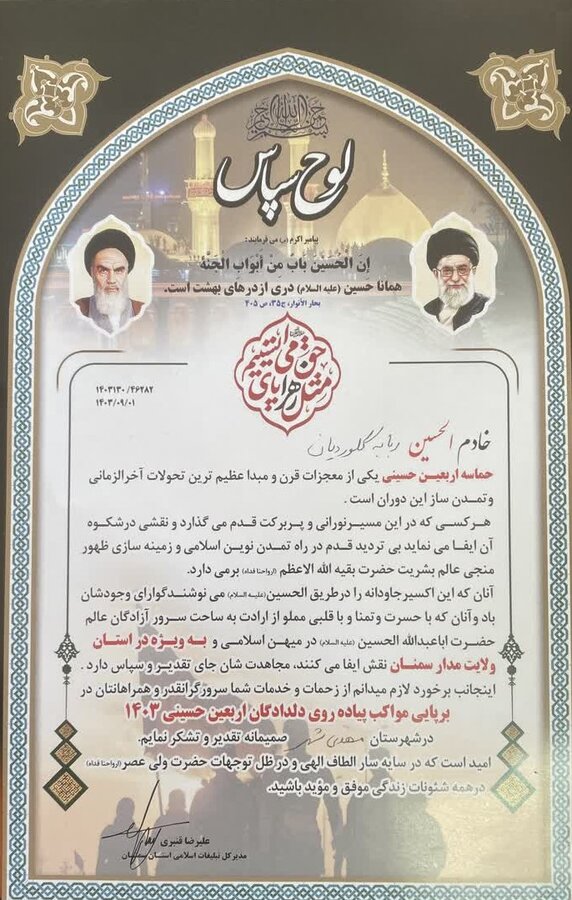 بسم الله الرحمن الرحیم
لوح سپاس
پیامبر اکرم (ص) می فرمایند:
اِنَ الْحُسَیْنَ بابُ مِنْ أَبْوابِ الْجَنَّهُ
همانا حسین (علیه السلام) دری از درهای بهشت است.
بحار الأنوار، ج۳۵، ص ۴۰۵
مثل زهرا پای حق می ایستیم
۱۴۰۳۱۳۰/۴۶۲۸۲
۱۴۰۳/۰۹/۰۱
خادم الحسین ربابه گلوردیان
حماسه اربعین حسینی یکی از معجزات قرن و مبدا عظیم ترین تحولات آخرالزمانی
وتمدن ساز این دوران است.
هرکسی که در این مسیرنورانی و پربرکت قدم می گذارد و نقشی درشکوه
آن ایفا می نماید بی تردید قدم در راه تمدن نوین اسلامی و زمینه سازی ظهور
منجی عالم بشریت حضرت بقیه الله الاعظم (ارواحنا فداه) برمی دارد.
آنان که این اکسیرجاودانه را درطریق الحسین (علیه السلام) می نوشندگوارای وجودشان
باد وآنان که با حسرت وتمنا و با قلبی مملو از ارادت به ساحت سرور آزادگان عالم
حضرت اباعبدالله الحسین (علیه السلام) در میهن اسلامی و به ویژه در استان
ولایت مدار سمنان نقش ایفا می کنند، مجاهدت شان جای تقدیر و سپاس دارد.
اینجانب برخورد لازم میدانم از زحمات و خدمات شما سرورگرانقدر و همراهانتان در
برپایی مواکب پیاده روی دلدادگان اربعین حسینی ۱۴۰۳
درشهرستان مهدی شهر صمیمانه تقدیر و تشکر نمایم.
امید است که در سایه سار الطاف الهی و در ظل توجهات حضرت ولی عصر (ارواحنا فداه)
درهمه شئونات زندگی موفق و مؤید باشید.
علیرضا قنبری
مدیر کل تبلیغات اسلامی استان سمنان